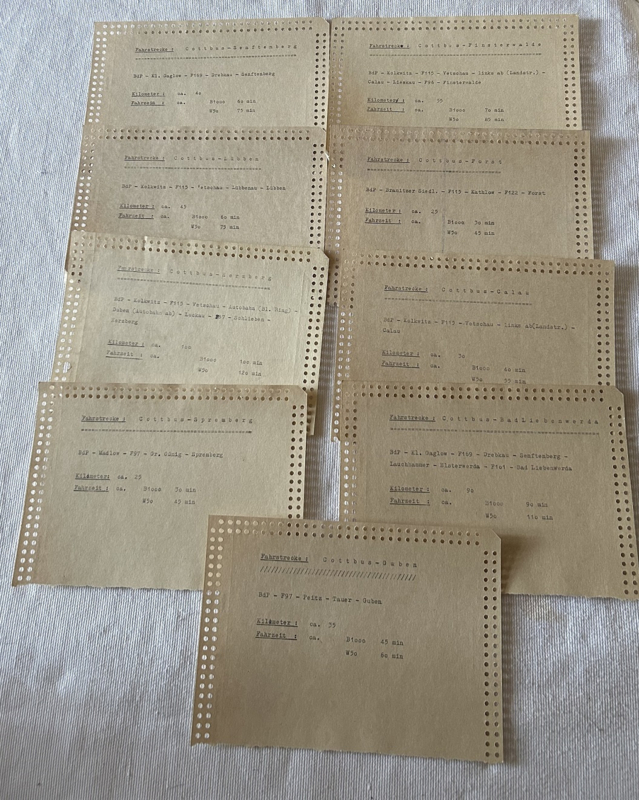 Fahrstrecke : Cottbus-Senftenberg
BdP - Kl. Gaglow - F169 - Drebkau - Senftenberg
Kilometer : ca.
Fahrzeit : ca. B1000 60 min
W50 75 min
Fahrstrecke : Cottbus-Finsterwalde
BdP - Kolkwitz - F115 - Vetschau - links ab (Landstr.) -
Calau - - F96 - Finsterwalde
Kilometer : ca. 55
Fahrzeit : ca. B1000 70 min
W50 80 min
Fahrstrecke : Cottbus-Lübben
BdP - Kolkwitz - F115 - Vetschau - Lübbenau - Lübben
Kilometer : ca. 45
Fahrzeit : ca. B1000 60 min
W50 75 min
Fahrstrecke : Cottbus-Forst
BdP - Branitzer Siedl. - F115 - Kathlow - F122 - Forst
Kilometer : ca. 25
Fahrzeit : ca. B1000 30 min
W50 45 min
Fahrstrecke : Cottbus-Herzberg
BdP - Kolkwitz - F115 - Vetschau - Autobahn (Bl. Ring) -
Duben (Autobahn ab) - Luckau - F87 - Schlieben -
Herzberg
Kilometer : ca. 100
Fahrzeit : ca. B1000 100 min
W50 120 min
Fahrstrecke : Cottbus-Calau
BdP - Kolkwitz - F115 - Vetschau - links ab(Landstr.) -
Calau
Kilometer : ca. 30
Fahrzeit : ca. B1000 min
W50 50 min
Fahrstrecke : Cottbus-Spremberg
BdP - Madlow - F97 - Gr. Oßnig - Spremberg
Kilometer : ca. 25
Fahrzeit : ca. B1000 30 min
W50 45 min
Fahrstrecke : Cottbus-BadLiebenwerda
BdP - Kl. Gaglow - F169 - Drebkau - Senftenberg -
Lauchhammer - Elsterwerda - F101 - Bad Liebenwerda
Kilometer : ca. 80
Fahrzeit : ca. B1000 90 min
W50 110 min
Fahrstrecke : Cottbus-Guben
BdP - F97 - Peitz - Tauer - Guben
Kilometer : ca. 35
Fahrzeit : ca. B1000 45 min
W50 60 min